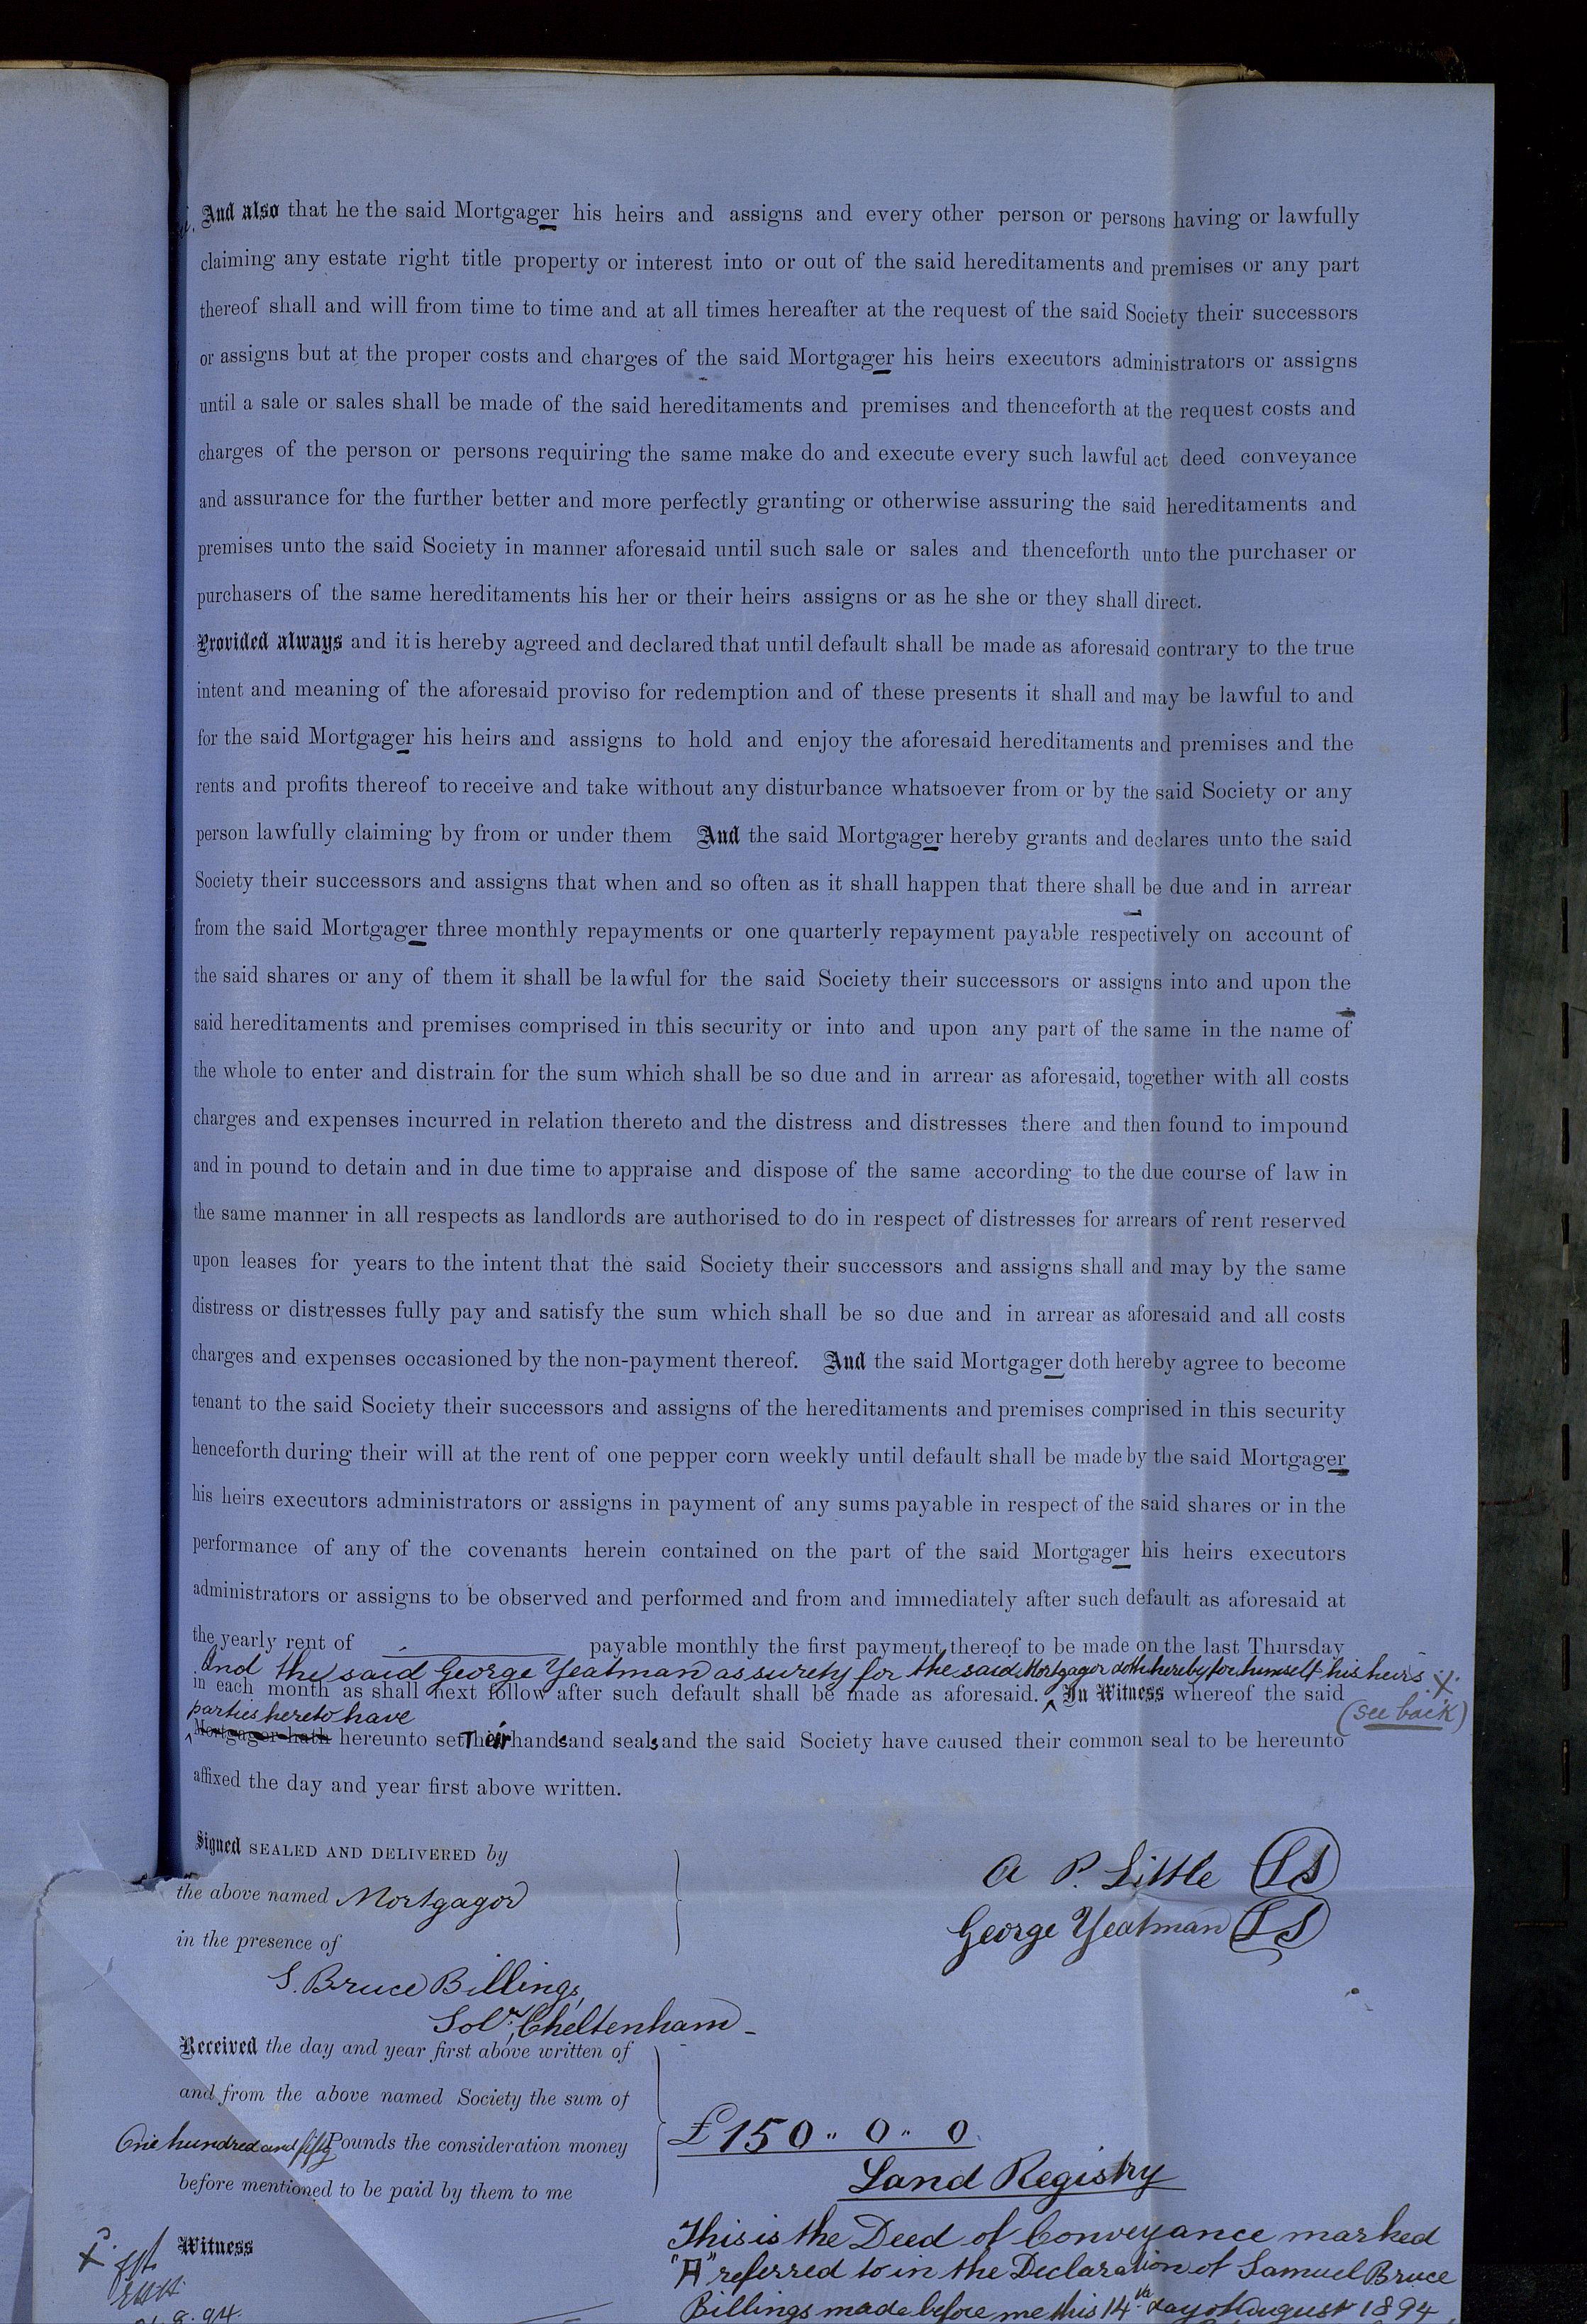 And also that he the said Mortgager his heirs and assigns and every other person or persons having or lawfully
claiming any estate right title property or interest into or out of the said hereditaments and premises or any part
thereof shall and will from time to time and at all times hereafter at the request of the said Society their successors
or assigns but at the proper costs and charges of the said Mortgager his heirs executors administrators or assigns
until a sale or sales shall be made of the said hereditaments and premises and thenceforth at the request costs and
charges of the person or persons requiring the same make do and execute every such lawful act deed conveyance
and assurance for the further better and more perfectly granting or otherwise assuring the said hereditaments and
premises unto the said Society in manner aforesaid until such sale or sales and thenceforth unto the purchaser or
purchasers of the same hereditaments his her or their heirs assigns or as he she or they shall direct.
Provided always and it is hereby agreed and declared that until default shall be made as aforesaid contrary to the true
intent and meaning of the aforesaid proviso for redemption and of these presents it shall and may be lawful to and
for the said Mortgager his heirs and assigns to hold and enjoy the aforesaid hereditaments and premises and the
rents and profits thereof to receive and take without any disturbance whatsoever from or by the said Society or any
person lawfully claiming by from or under them And the said Mortgager hereby grants and declares unto the said
Society their successors and assigns that when and so often as it shall happen that there shall be due and in arrear
from the said Mortgager three monthly repayments or one quarterly repayment payable respectively on account of
the said shares or any of them it shall be lawful for the said Society their successors or assigns into and upon the
said hereditaments and premises comprised in this security or into and upon any part of the same in the name of
the whole to enter and distrain for the sum which shall be so due and in arrear as aforesaid, together with all costs
charges and expenses incurred in relation thereto and the distress and distresses there and then found to impound
and in pound to detain and in due time to appraise and dispose of the same according to the due course of law in
the same manner in all respects as landlords are authorised to do in respect of distresses for arrears of rent reserved
upon leases for years to the intent that the said Society their successors and assigns shall and may by the same
distress or distresses fully pay and satisfy the sum which shall be so due and in arrear as aforesaid and all costs
charges and expenses occasioned by the non-payment thereof. And the said Mortgager doth hereby agree to become
tenant to the said Society their successors and assigns of the hereditaments and premises comprised in this security
henceforth during their will at the rent of one pepper corn weekly until default shall be made by the said Mortgager
his heirs executors administrators or assigns in payment of any sums payable in respect of the said shares or in the
performance of any of the covenants herein contained on the part of the said Mortgager his heirs executors
administrators or assigns to be observed and performed and from and immediately after such default as aforesaid at
the yearly rent of payable monthly the first payment thereof to be made on the last Thursday
And the said George Yeatman as surety for the said Mortgagor doth hereby for himself his heirs X
in each month as shall next follow after such default shall be made as aforesaid. In Witness whereof the said
(see back)
parties hereto have
Mortgagor hath hereunto set Their hands and seals and the said Society have caused their common seal to be hereunto
affixed the day and year first above written.
Signed SEALED AND DELIVERED by
the above named Mortgagor
in the presence of
S. Bruce Billings,
Solr. Cheltenham
A P. Little LS
George Yeatman LS
Received the day and year first above written of
and from the above named Society the sum of
One hundred and fifty Pounds the consideration money
before mentioned to be paid by them to me
£150 " 0 " 0
Witness
Land Registry
This is the Deed of Conveyance marked
"A" referred to in the Declaration of Samuel Bruce
Billings made before me this 14th day of August 1894